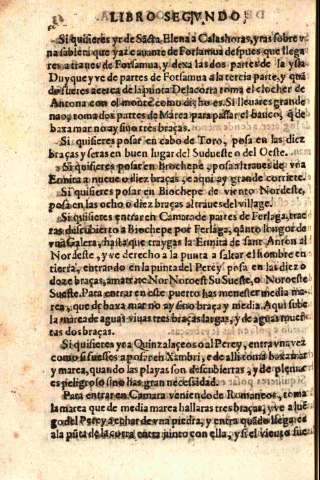 LIBRO SEGVNDO.
Si quisieres yr de Sãcta Elena a Calashoras, y ras sobre v
na sabieni que yaz causante de Forsamua despues que llega
res a traues de Forsamua, y dexa las dos partes de la ysla
Duyque y ve de partes de Fotsamua a la tercia parte, y quã
do fueres acerca de la pũta Delacorra toma el clocher de
Antona con el monte como dicho es. Si lleuares grande
nao, toma dos partes de Marea para passar el banco, q̃ de
baxa mar no ay sino tres braças.
Si quisieres posar en cabo de Toro, posa en las diez
braças y seras en buen lugar del Sudueste o del Oeste.
Si quisieres posar en Biochepe, posa atraues de vna
Ermita a nueue o diez braças, e aqui ay grande corriete.
Si quisieres posar en Biochepe de viento Nordeste,
posa en las ocho o diez braças al traues del village.
Si quisieres entrar en Camara de partes de Ferlaga, trae
ras descubierto a Biochepe por Ferlaga, quãto longor de
vna Galera, hasta que traygas la Ermita de sant Anton al
Nordeste, y ve derecho a la punta a saltar el hombre en
tierra, entrando en la punta del Perey posa en las diez o
doze braças, amarrate Nor Noroest Su Sueste, o Noroeste
Sueste. Para entrar en este puerto has menester media ma
rea, que de baxa mar no ay sino braça y media. Aqui sube
la marea de aguas viuas tres braças largas, y de aguas muer
tas dos braças.
Si quisieres yr a Quinzalaçeos o al Perey, entra vna vez
como si fuesses a posar en Xambri, e de alli toma baxa mar
y marea, quando las playas son descubiertas, y de plenus
es peligroso sino has gran necesidad.
Para entrar en Camara veniendo de Romaneos, toma
la marea que de media marea hallaras tres braças, y ve a lue
go del Perey echar de vna piedra, y entra quãdo llegares
a la pũta de la corra entra junto con ella, y si el viento fue